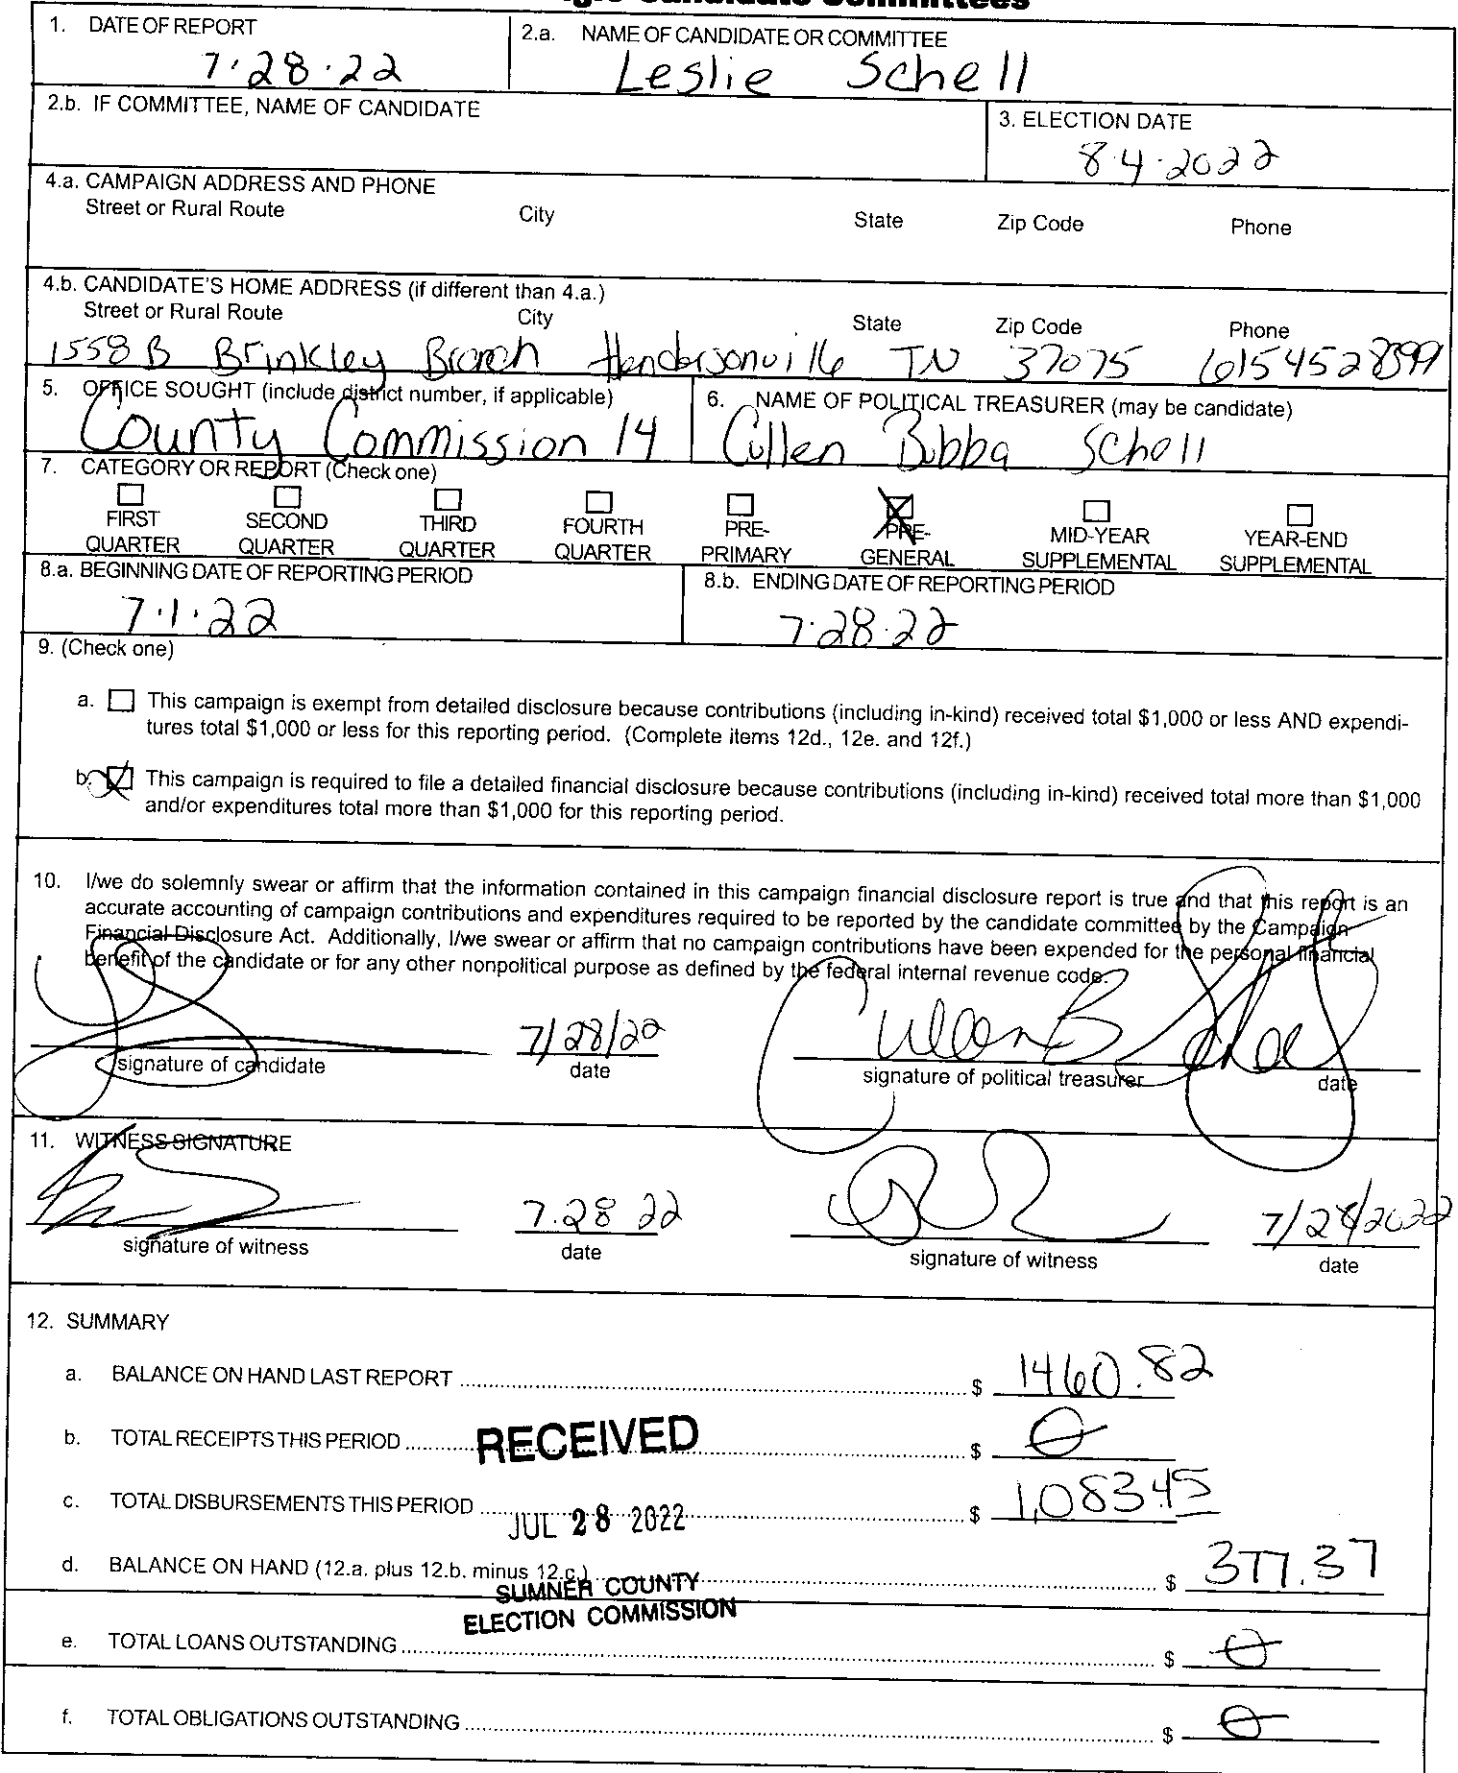 Candidate Committees
1. DATE OF REPORT
7.28.22
2.a. NAME OF CANDIDATE OR COMMITTEE
Leslie Schell
2.b. IF COMMITTEE, NAME OF CANDIDATE
3. ELECTION DATE
8.4.2022
4.a. CAMPAIGN ADDRESS AND PHONE
Street or Rural Route City State Zip Code Phone
4.b. CANDIDATE'S HOME ADDRESS (if different than 4.a.)
Street or Rural Route City State Zip Code Phone
1558 B Brinkley Branch Hendersonville TN 37075 6154528399
5. OFFICE SOUGHT (include district number, if applicable)
County Commission 14
6. NAME OF POLITICAL TREASURER (may be candidate)
Cullen Bubba Schell
7. CATEGORY OR REPORT (Check one)
FIRST QUARTER
SECOND QUARTER
THIRD QUARTER
FOURTH QUARTER
PRE-PRIMARY
PRE-GENERAL
MID-YEAR SUPPLEMENTAL
YEAR-END SUPPLEMENTAL
8.a. BEGINNING DATE OF REPORTING PERIOD
7.1.22
8.b. ENDING DATE OF REPORTING PERIOD
7.28.22
9. (Check one)
a. This campaign is exempt from detailed disclosure because contributions (including in-kind) received total $1,000 or less AND expendi-
tures total $1,000 or less for this reporting period. (Complete items 12d., 12e. and 12f.)
b. This campaign is required to file a detailed financial disclosure because contributions (including in-kind) received total more than $1,000
and/or expenditures total more than $1,000 for this reporting period.
10. I/we do solemnly swear or affirm that the information contained in this campaign financial disclosure report is true and that this report is an
accurate accounting of campaign contributions and expenditures required to be reported by the candidate committee by the Campaign
Financial Disclosure Act. Additionally, I/we swear or affirm that no campaign contributions have been expended for the personal financial
benefit of the candidate or for any other nonpolitical purpose as defined by the federal internal revenue code.
7/28/22
Cullen B Schell
signature of candidate date signature of political treasurer date
11. WITNESS SIGNATURE
7.28 22
7/28/2022
signature of witness date signature of witness date
12. SUMMARY
a. BALANCE ON HAND LAST REPORT $ 1460.82
b. TOTAL RECEIPTS THIS PERIOD $ 0
RECEIVED
c. TOTAL DISBURSEMENTS THIS PERIOD $ 1,083.45
JUL 28 2022
d. BALANCE ON HAND (12.a. plus 12.b. minus 12.c.) $ 377.37
SUMNER COUNTY
ELECTION COMMISSION
e. TOTAL LOANS OUTSTANDING $ 0
f. TOTAL OBLIGATIONS OUTSTANDING $ 0